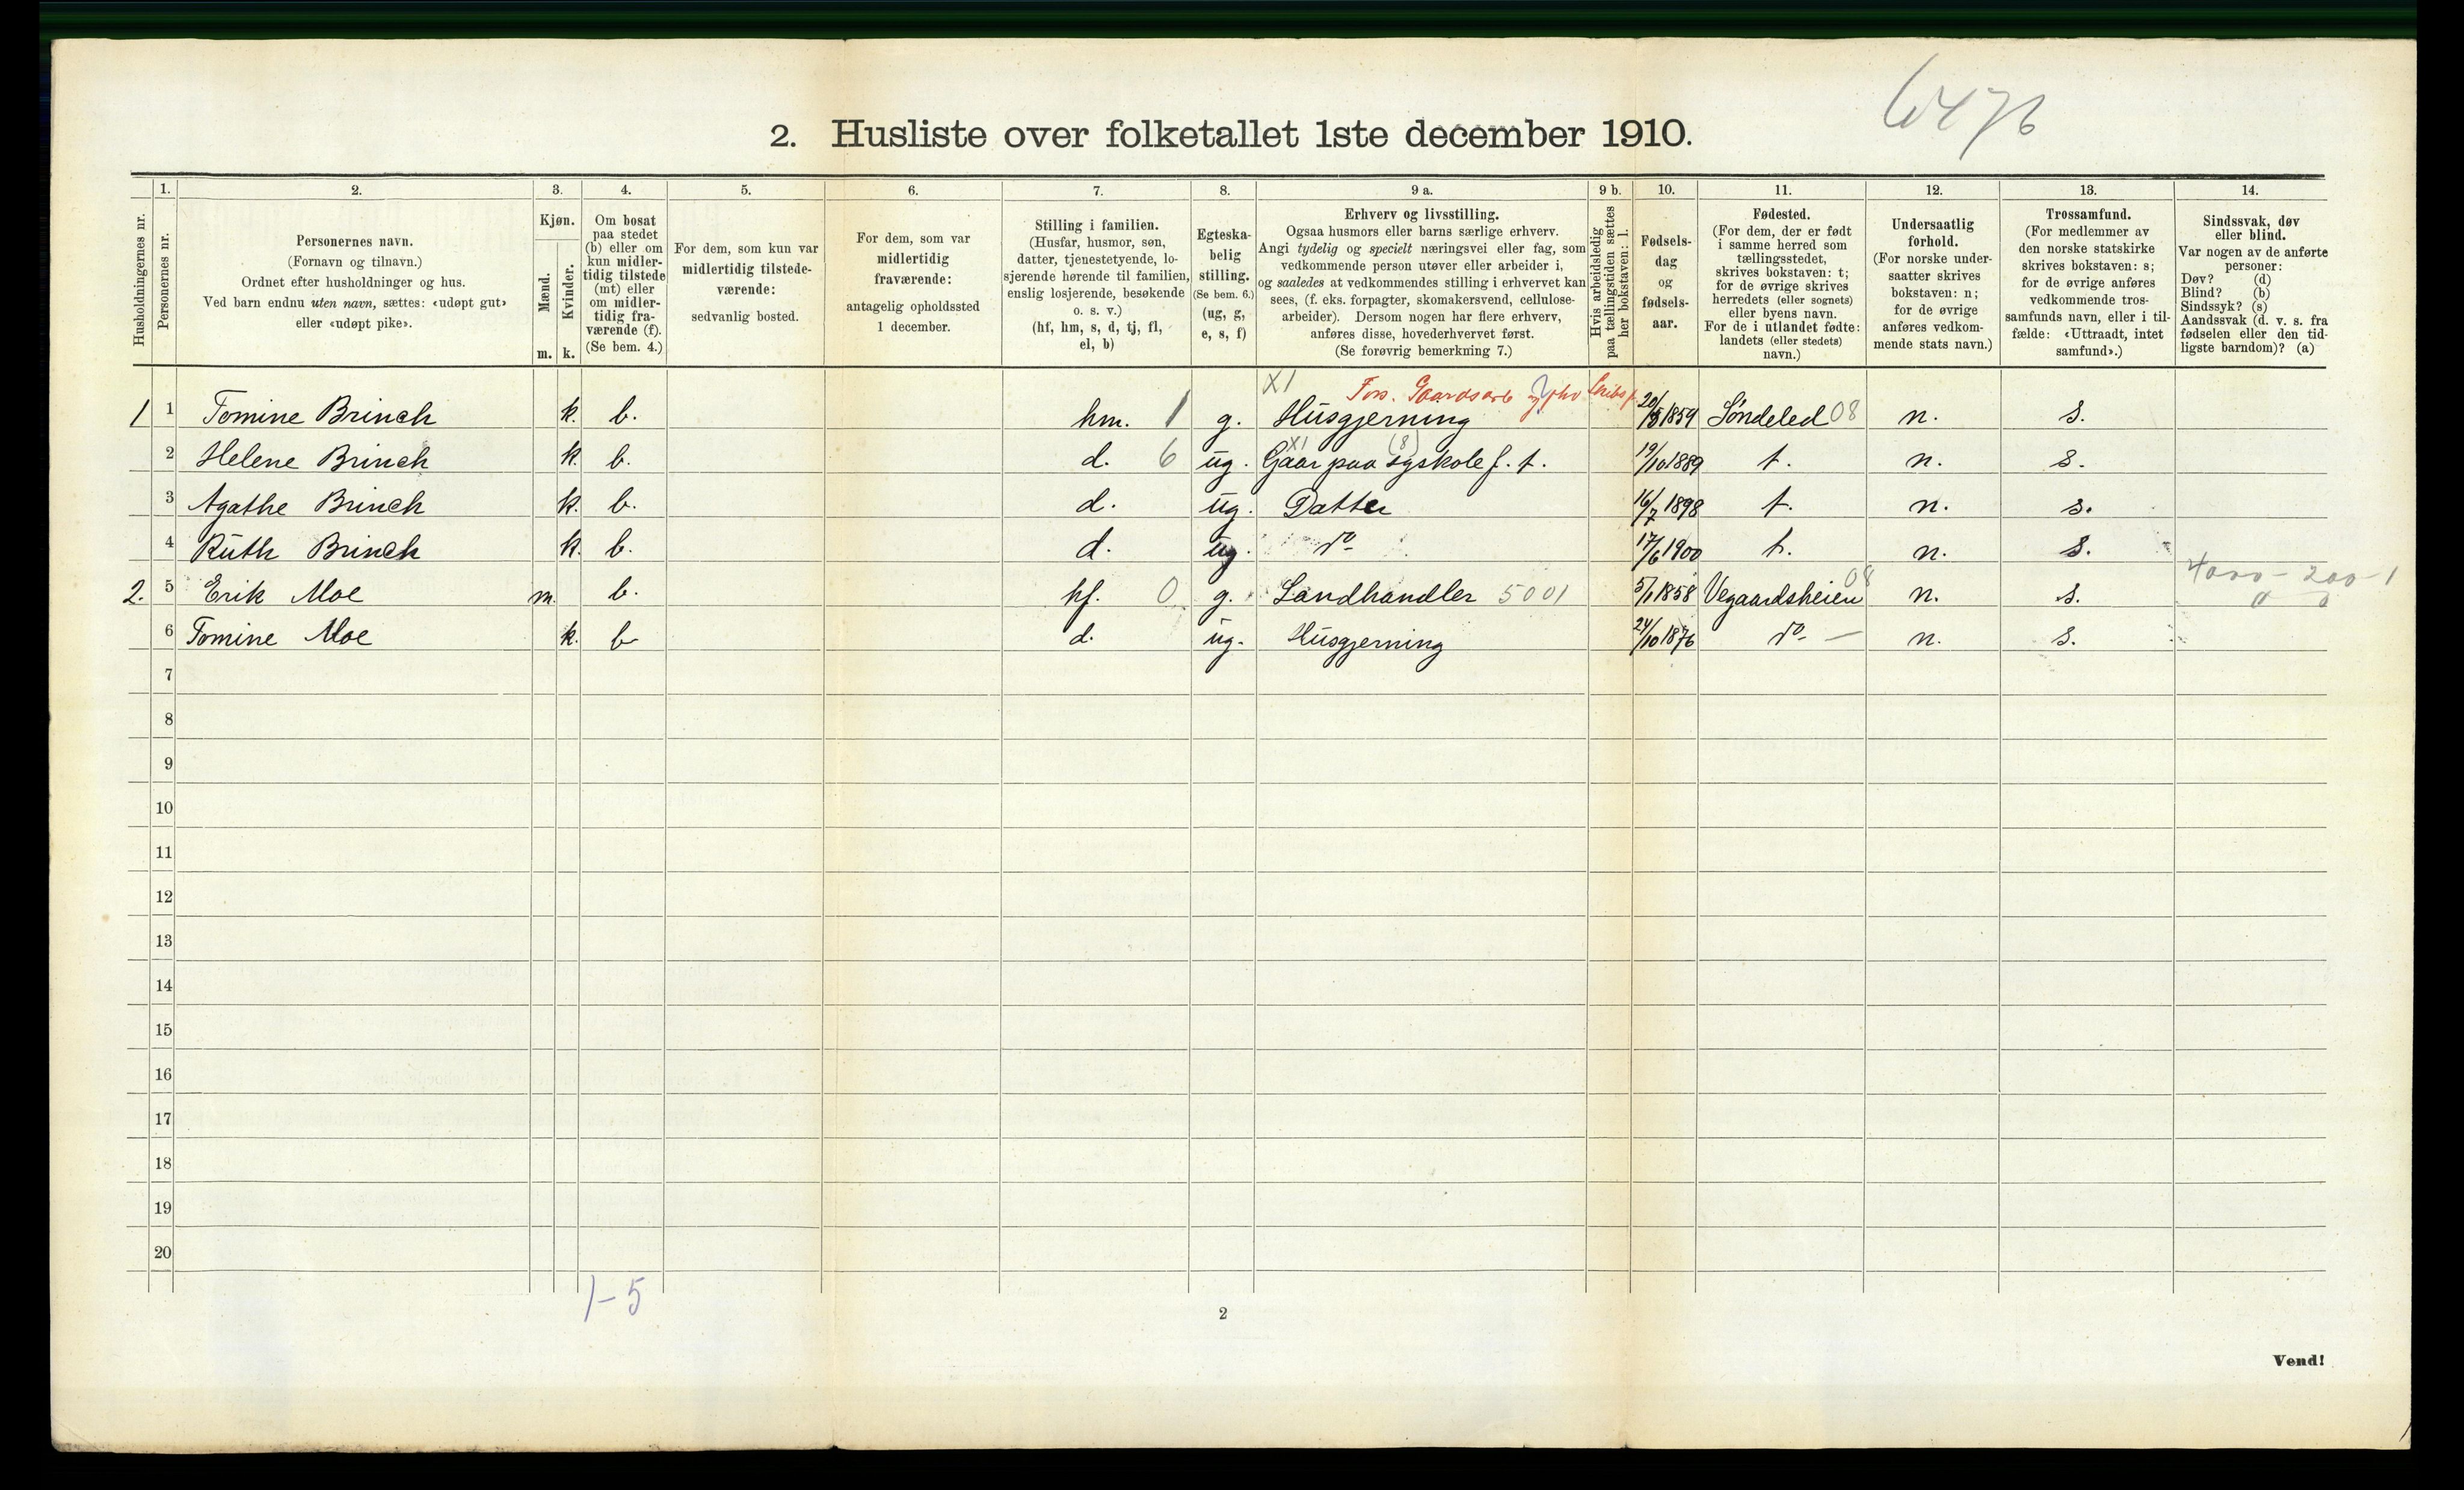 6476
2. Husliste over folketallet 1ste december 1910.
Husholdningernes nr.
1.
Personernes nr.
2.
Personernes navn.
(Fornavn og tilnavn.)
Ordnet efter husholdninger og hus.
Ved barn endnu uten navn, sættes: «udøpt gut»
eller «udøpt pike».
3.
Kjøn.
Mænd.
Kvinder.
m. k.
4.
Om bosat
paa stedet
(b) eller om
kun midler-
tidig tilstede
(mt) eller
om midler-
tidig fra-
værende (f).
(Se bem. 4.)
5.
For dem, som kun var
midlertidig tilstede-
værende:
sedvanlig bosted.
6.
For dem, som var
midlertidig
fraværende:
antagelig opholdssted
1 december.
7.
Stilling i familien.
(Husfar, husmor, søn,
datter, tjenestetyende, lo-
sjerende hørende til familien,
enslig losjerende, besøkende
o. s. v.)
(hf, hm, s, d, tj, fl,
el, b)
8.
Egteska-
belig
stilling.
(Se bem. 6.)
(ug, g,
e, s, f)
9 a.
Erhverv og livsstilling.
Ogsaa husmors eller barns særlige erhverv.
Angi tydelig og specielt næringsvei eller fag, som
vedkommende person utøver eller arbeider i,
og saaledes at vedkommendes stilling i erhvervet kan
sees, (f. eks. forpagter, skomakersvend, cellulose-
arbeider). Dersom nogen har flere erhverv,
anføres disse, hovederhvervet først.
(Se forøvrig bemerkning 7.)
9 b.
Hvis arbeidsledig
paa tællingstiden sættes
her bokstaven: l.
10.
Fødsels-
dag
og
fødsels-
aar.
11.
Fødested.
(For dem, der er født
i samme herred som
tællingsstedet,
skrives bokstaven: t;
for de øvrige skrives
herredets (eller sognets)
eller byens navn.
For de i utlandet fødte:
landets (eller stedets)
navn.)
12.
Undersaatlig
forhold.
(For norske under-
saatter skrives
bokstaven: n;
for de øvrige
anføres vedkom-
mende stats navn.)
13.
Trossamfund.
(For medlemmer av
den norske statskirke
skrives bokstaven: s;
for de øvrige anføres
vedkommende tros-
samfunds navn, eller i til-
fælde: «Uttraadt, intet
samfund».)
14.
Sindssvak, døv
eller blind.
Var nogen av de anførte
personer:
Døv? (d)
Blind? (b)
Sindssyk? (s)
Aandssvak (d. v. s. fra
fødselen eller den tid-
ligste barndom)? (a)
X1 Fors. Gaardsarb
1 1 Tomine Brinch k. b. hm. 1 g. Husgjerning 1859 Søndeled 08 n. s.
X1 (8)
2 Helene Brinch k. b. d. 6 ug. Gaar paa syskole f. t. 19/10 1889 t. n. s.
3 Agathe Brinch k. b. d. ug. Datter 16/7 1898 t. n. s.
4 Ruth Brinch k. b. d. ug. do 17/6 1900 t. n. s.
2. 5 Erik Moe m. b. hf. 0 g. Landhandler 5001 5/1 1858 Vegaardsheien 08 n. s. 4000 - 200 - 1
6 Tomine Moe k. b d. ug. Husgjerning 24/10 1876 do — n. s.
7
8
9
10
11
12
13
14
15
16
17
18
19
20
1-5
2
Vend!